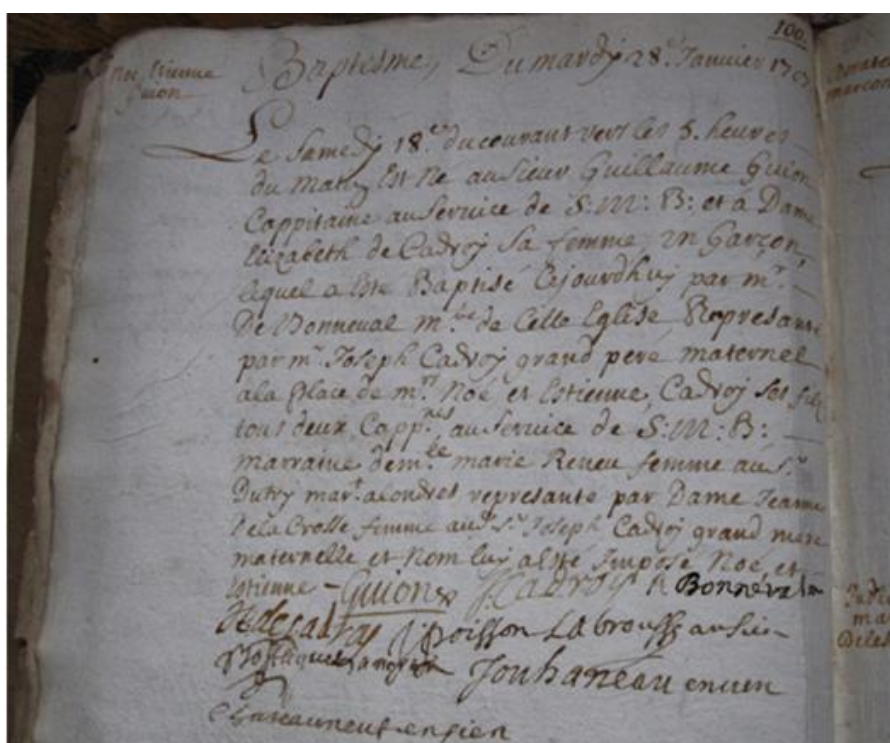 100.
Noé, Estienne
Guion
Baptesme, Du mardy 28.e Januier 170
Le Samedy 18.e du courant vers les 5. heures
du Matin Est Né au Sieur Guillaume Guion
Cappitaine au Seruice de S: M: B: et a Dame
Elizabeth de Cadroy Sa femme, un Garçon,
lequel a Esté Baptisé Cejourdhuy par mr.
De Bonneual m.tre de Cette Eglise, Represanté
par mr. Joseph Cadroy grand pere maternel
ala Place de mrs. Noé et Estienne, Cadroy Ses fils
tous deux Capp.nes au Seruice de S: M: B:
marraine dem.lle marie Reneu femme au Sr.
Dutry mar.t alondres represanté par Dame Jeanne
De la Crosse femme aud. Sr. Joseph Cadroy grand mere
maternelle et Nom luy a Esté Imposé Noé, et
Estienne - Guion J. Cadroy Bonnéval
de Cadroy Poisson Labrousse ansien
Jouhaneau encien
Chateauneuf ensien